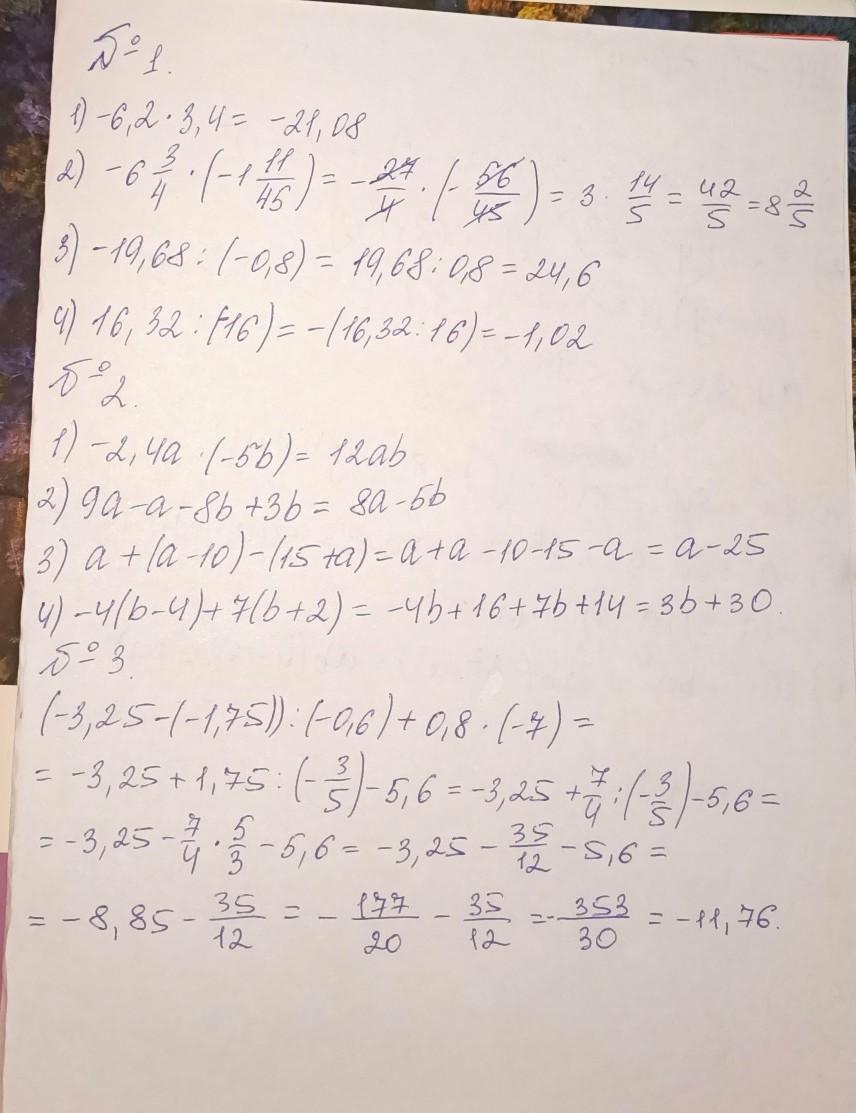 № 1.
1) -6,2 · 3,4 = -21,08
2) -6 3/4 · (-1 11/45) = -27/4 · (-56/45) = 3 · 14/5 = 42/5 = 8 2/5
3) -19,68 : (-0,8) = 19,68 : 0,8 = 24,6
4) 16,32 : (-16) = -(16,32 : 16) = -1,02
№ 2.
1) -2,4a · (-5b) = 12ab
2) 9a - a - 8b + 3b = 8a - 5b
3) a + (a - 10) - (15 + a) = a + a - 10 - 15 - a = a - 25
4) -4(b - 4) + 7(b + 2) = -4b + 16 + 7b + 14 = 3b + 30.
№ 3.
(-3,25 - (-1,75)) : (-0,6) + 0,8 · (-7) =
= -3,25 + 1,75 : (-3/5) - 5,6 = -3,25 + 7/4 : (-3/5) - 5,6 =
= -3,25 - 7/4 · 5/3 - 5,6 = -3,25 - 35/12 - 5,6 =
= -8,85 - 35/12 = - 177/20 - 35/12 = - 353/30 = -11,76.